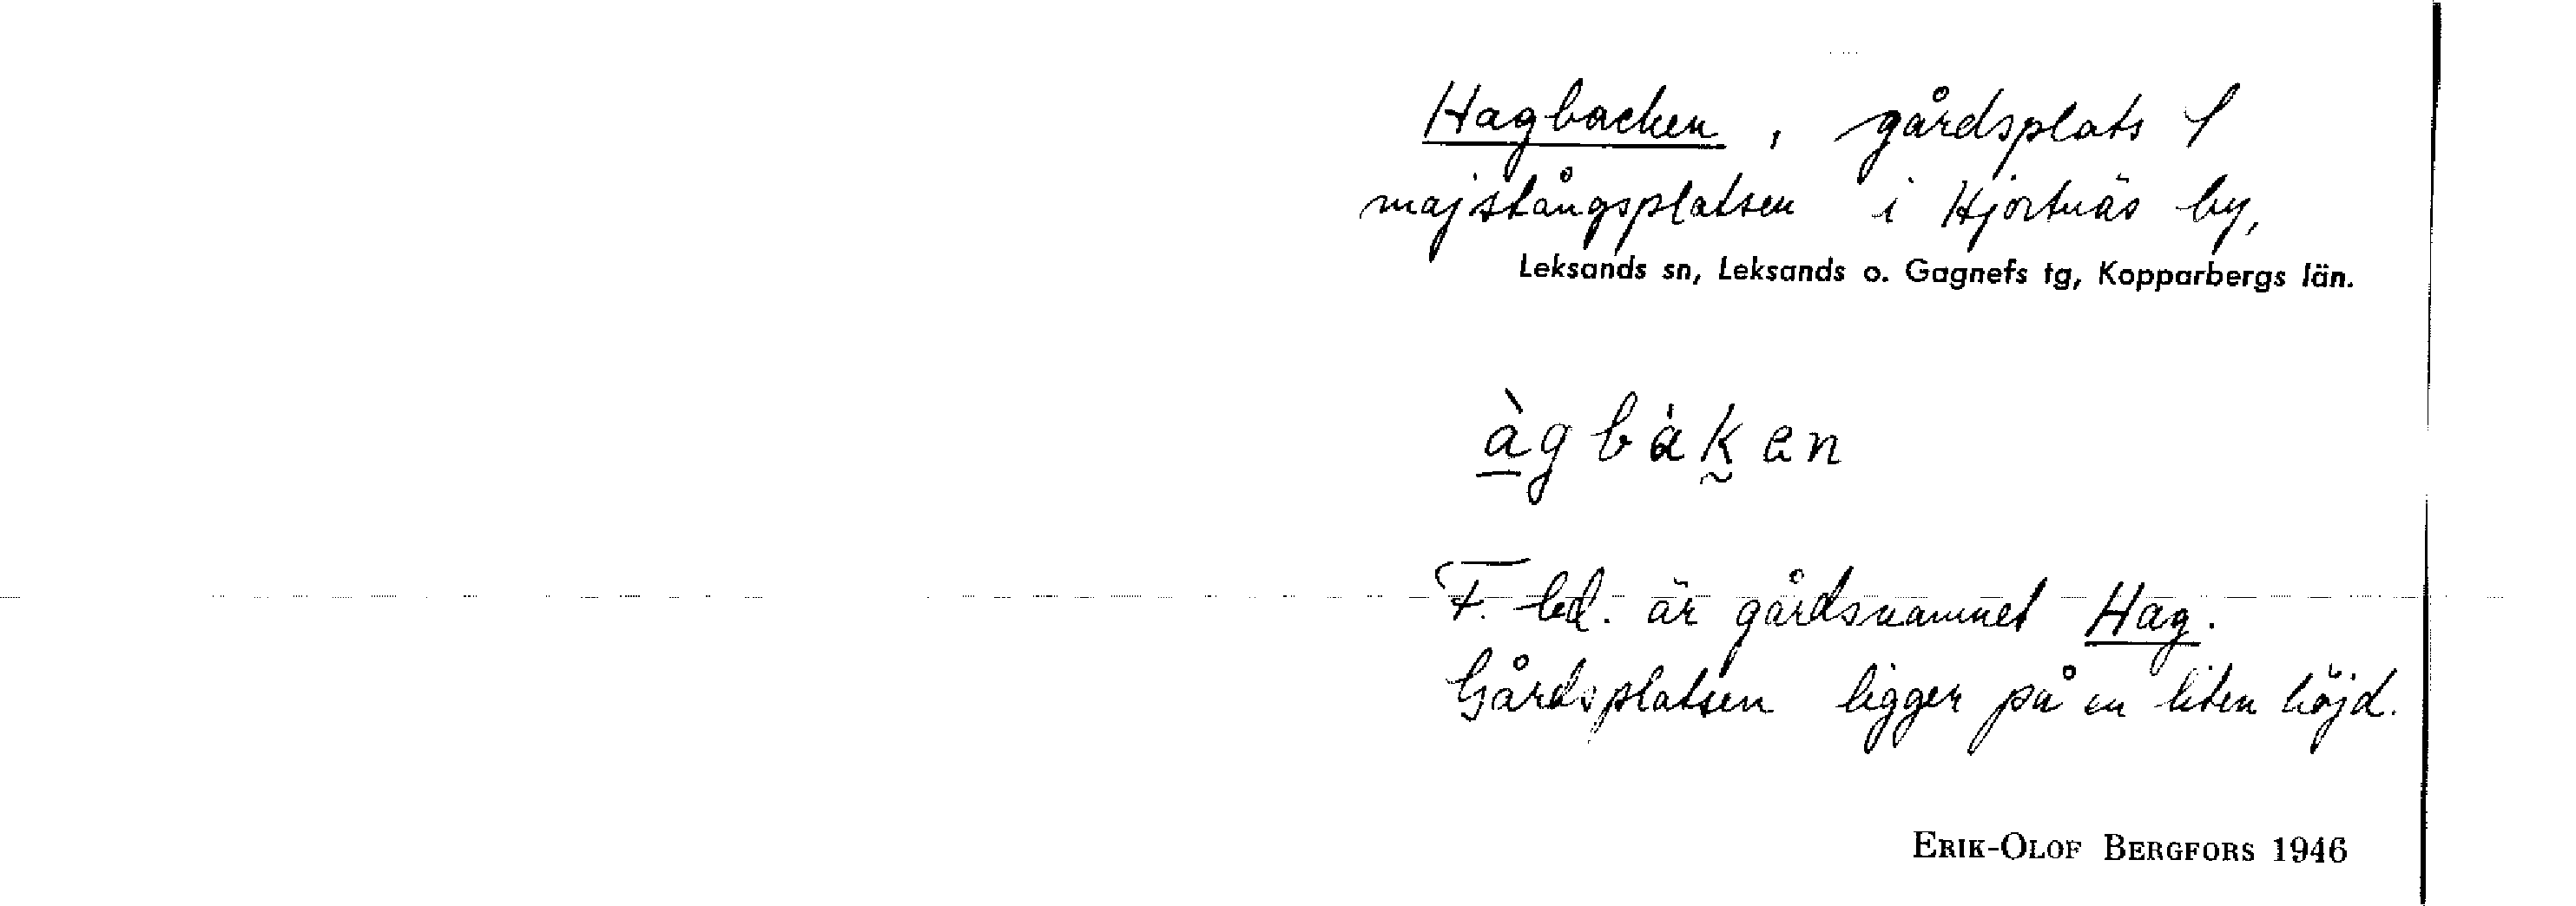 Hagbacken, gårdsplats S
majstångsplatsen i Hjortnäs by,
Leksands sn, Leksands o. Gagnefs tg, Kopparbergs län.
àgbȧk̰en
F. led. är gårdsnamnet Hag.
Gårdsplatsen ligger på en liten höjd.
ERIK-OLOF BERGFORS 1946